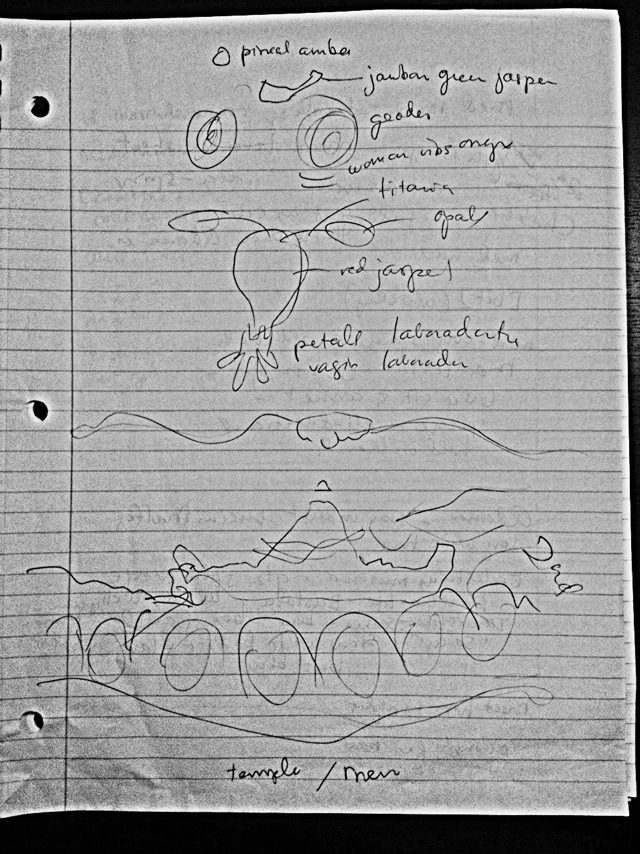 pineal amber
jawbon green jasper
geodes
woman ribs onyx
titania
opal
red jasper
petals labradorite
vagin labrador
temple / men